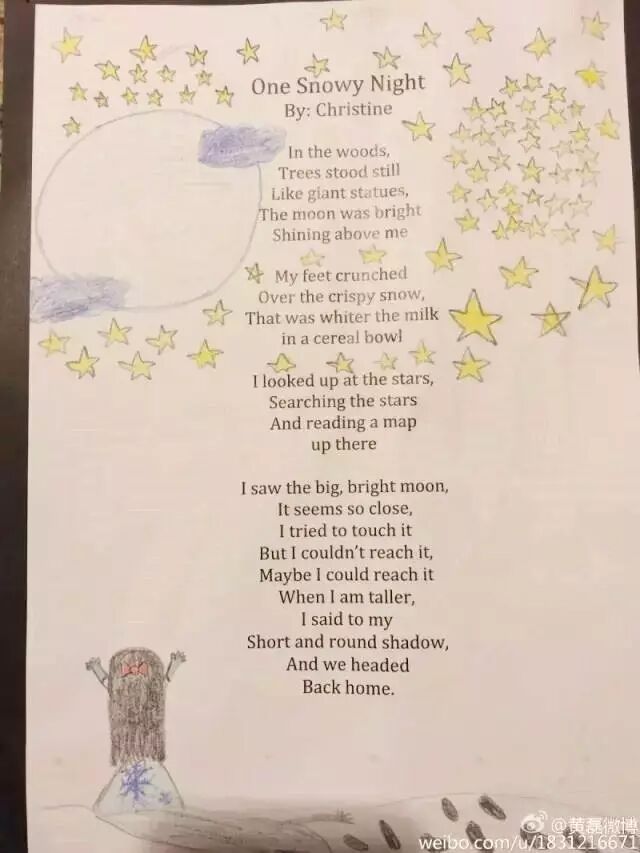 One Snowy Night
By: Christine
In the woods,
Trees stood still
Like giant statues,
The moon was bright
Shining above me
My feet crunched
Over the crispy snow,
That was whiter the milk
in a cereal bowl
I looked up at the stars,
Searching the stars
And reading a map
up there
I saw the big, bright moon,
It seems so close,
I tried to touch it
But I couldn't reach it,
Maybe I could reach it
When I am taller,
I said to my
Short and round shadow,
And we headed
Back home.
@黄磊微博
weibo.com/u/1831216671